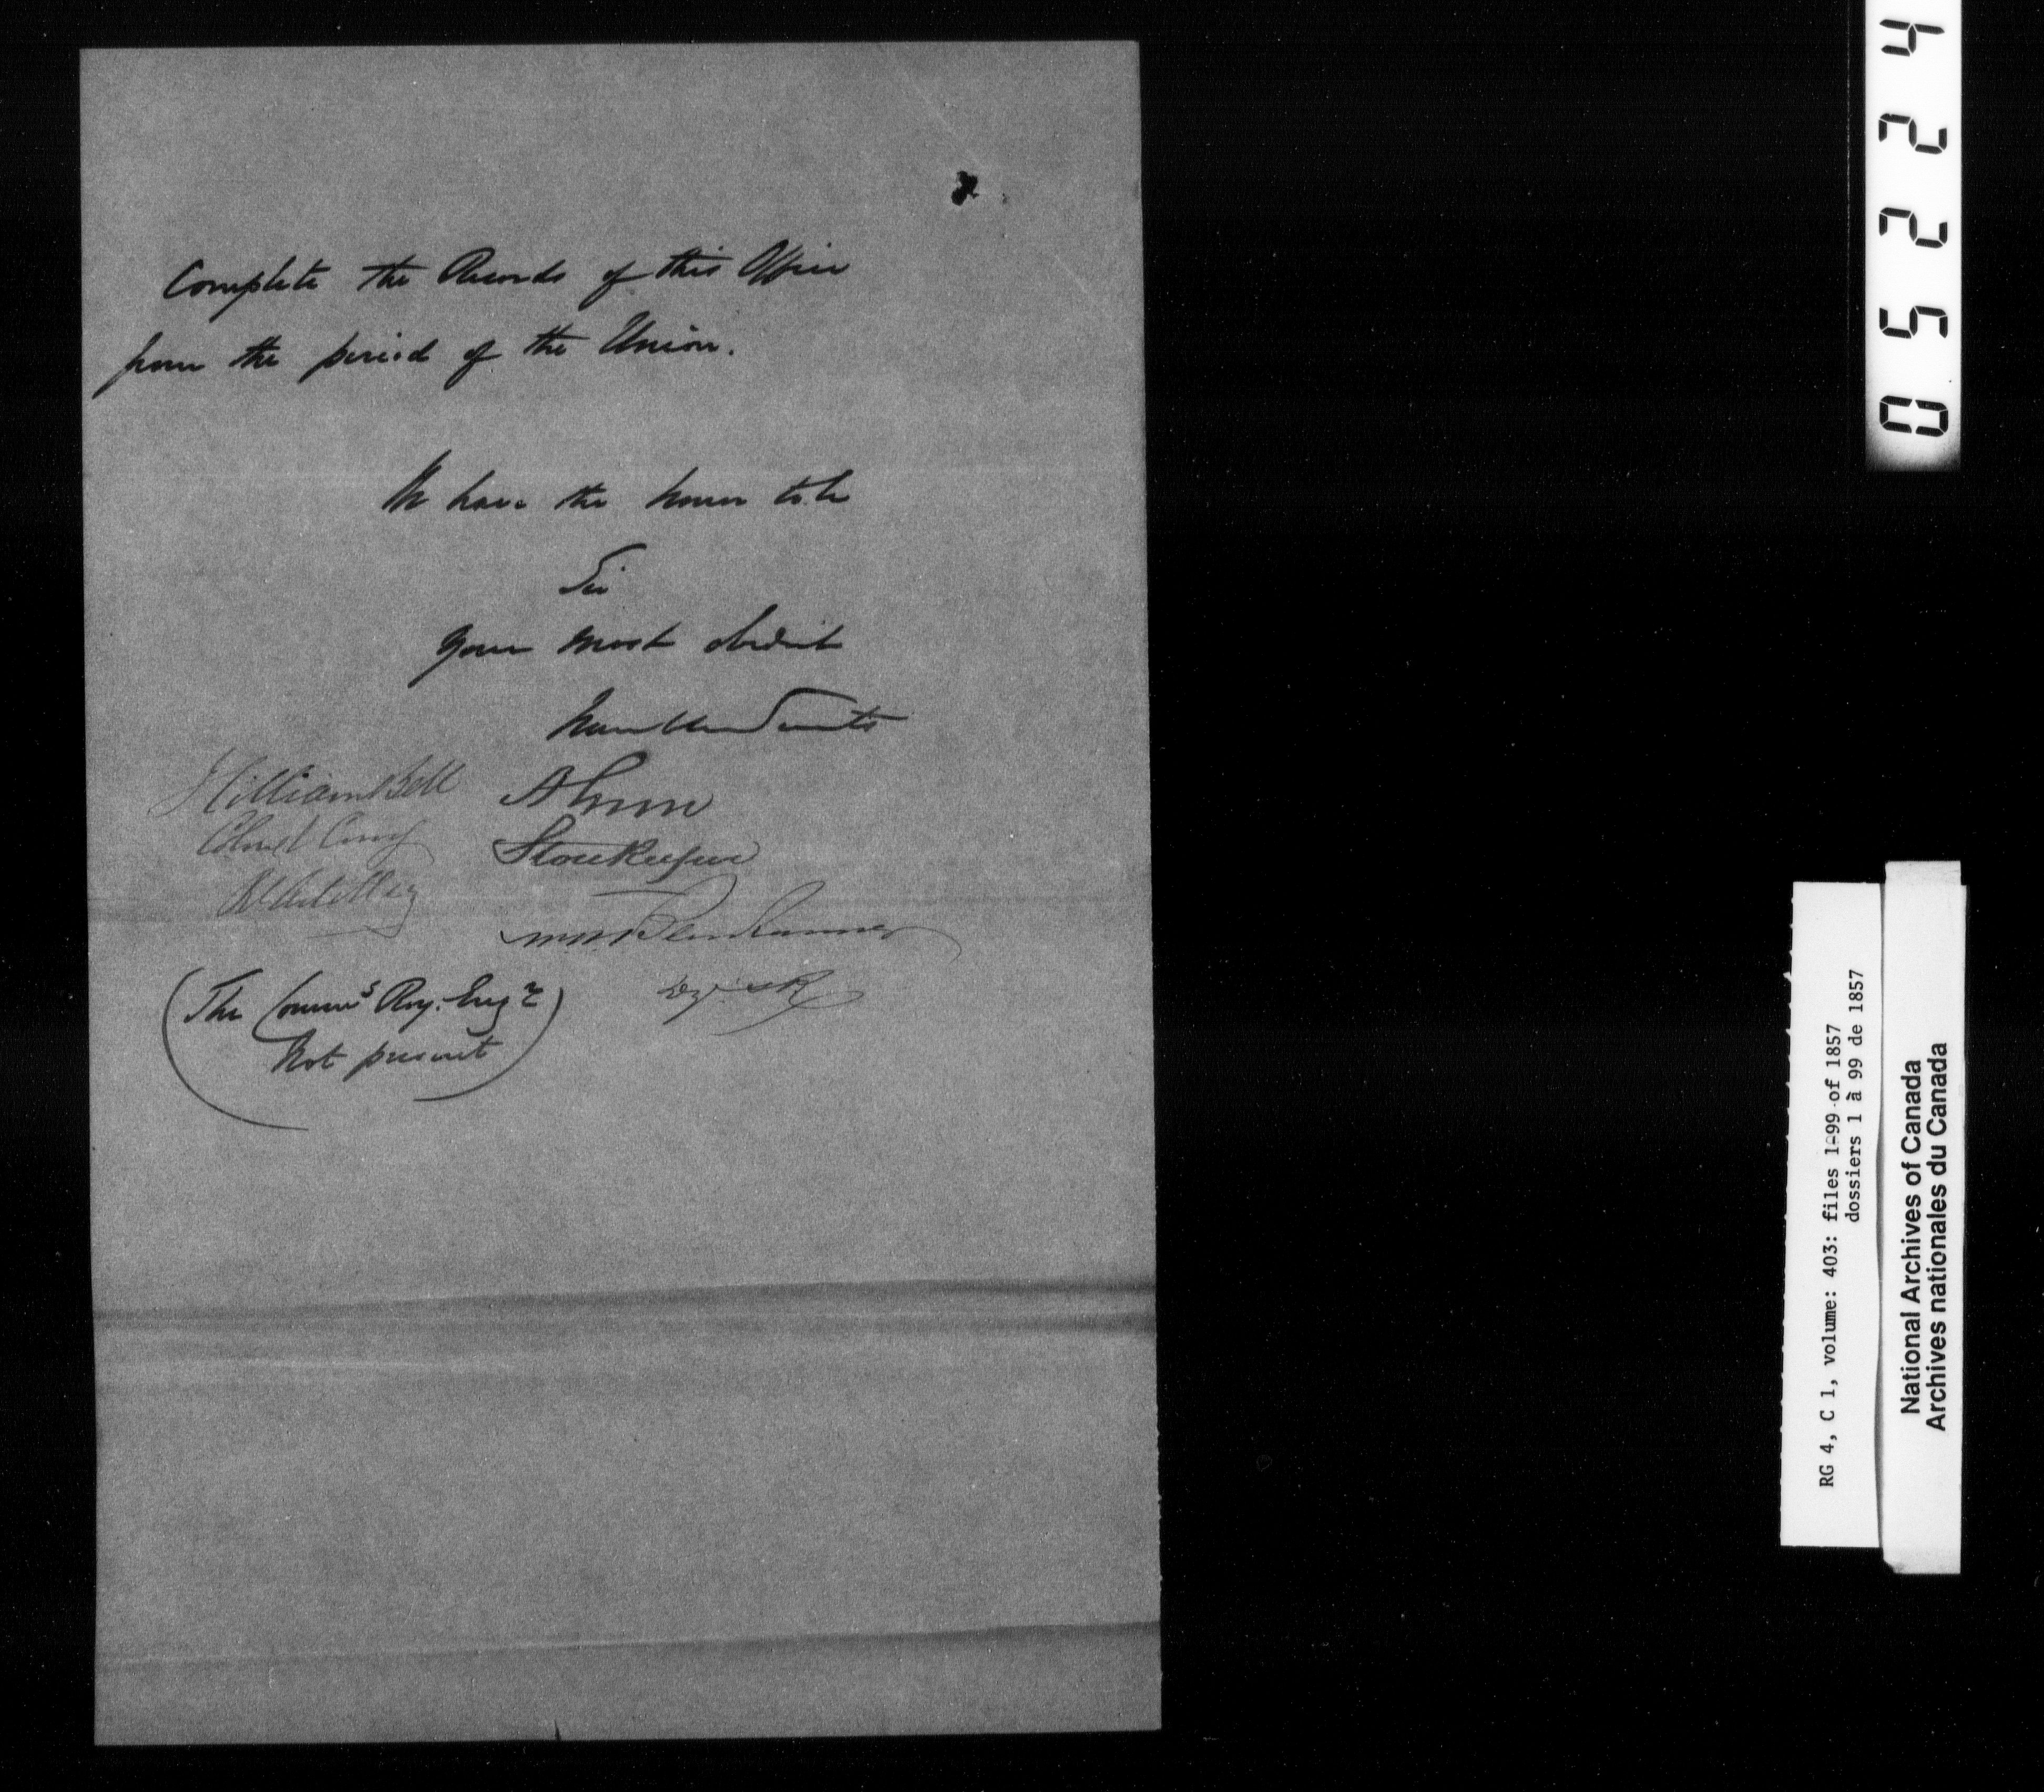 Complete the Records of this Office
from the period of the Union.
We have the honor to be
Sir
Your most obedient
humble Servants
William Bell
Colonel Comg
Rl Artillery
Storekeeper
(The Commg Roy. Engr
Not present)
05224
RG 4, C 1, volume: 403: files 1-99 of 1857
dossiers 1 à 99 de 1857
National Archives of Canada
Archives nationales du Canada